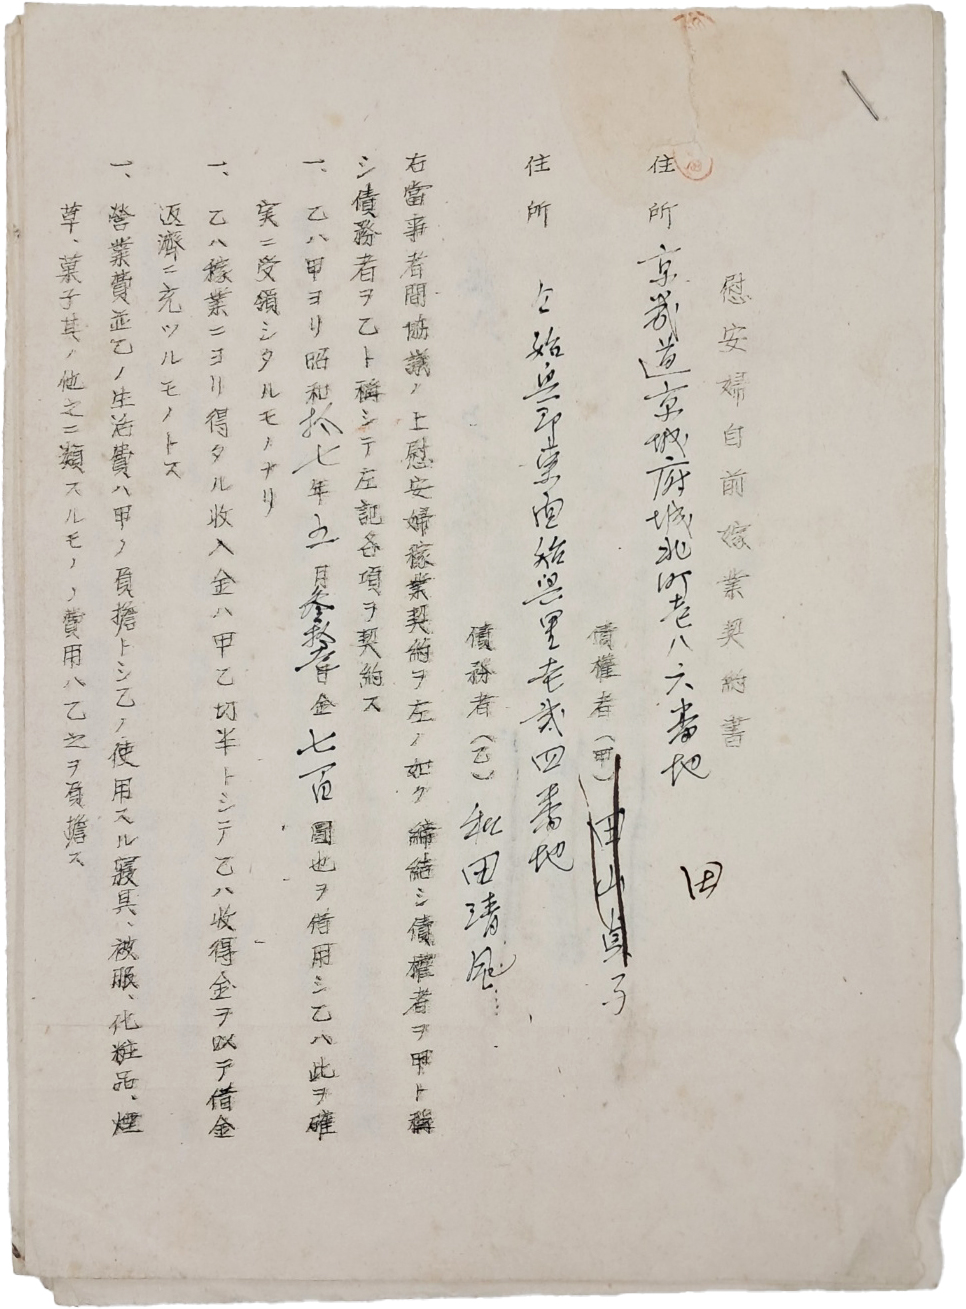 慰安婦自前嫁業契約書
住所 京畿道京城府城北町壱八六番地
債權者(甲) 田山貞子
田
住所 仝始興郡東面始興里壱弐四番地
債務者(乙) 秋田清風
右當事者間協議ノ上慰安婦稼業契約ヲ左ノ如ク締結シ債權者ヲ甲ト稱
シ債務者ヲ乙ト稱シテ左記各項ヲ契約ス
一、乙ハ甲ヨリ昭和拾七年五月参拾日金七百圓也ヲ借用シ乙ハ此ヲ確
実ニ受領シタルモノナリ
一、乙ハ稼業ニヨリ得タル收入金ハ甲乙切半トシテ乙ハ收得金ヲ以テ借金
返濟ニ充ツルモノトス
一、營業費並乙ノ生活費ハ甲ノ負擔トシ乙ノ使用スル寢具、被服、化粧品、煙
草、菓子其ノ他之ニ類スルモノノ費用ハ乙之ヲ負擔ス